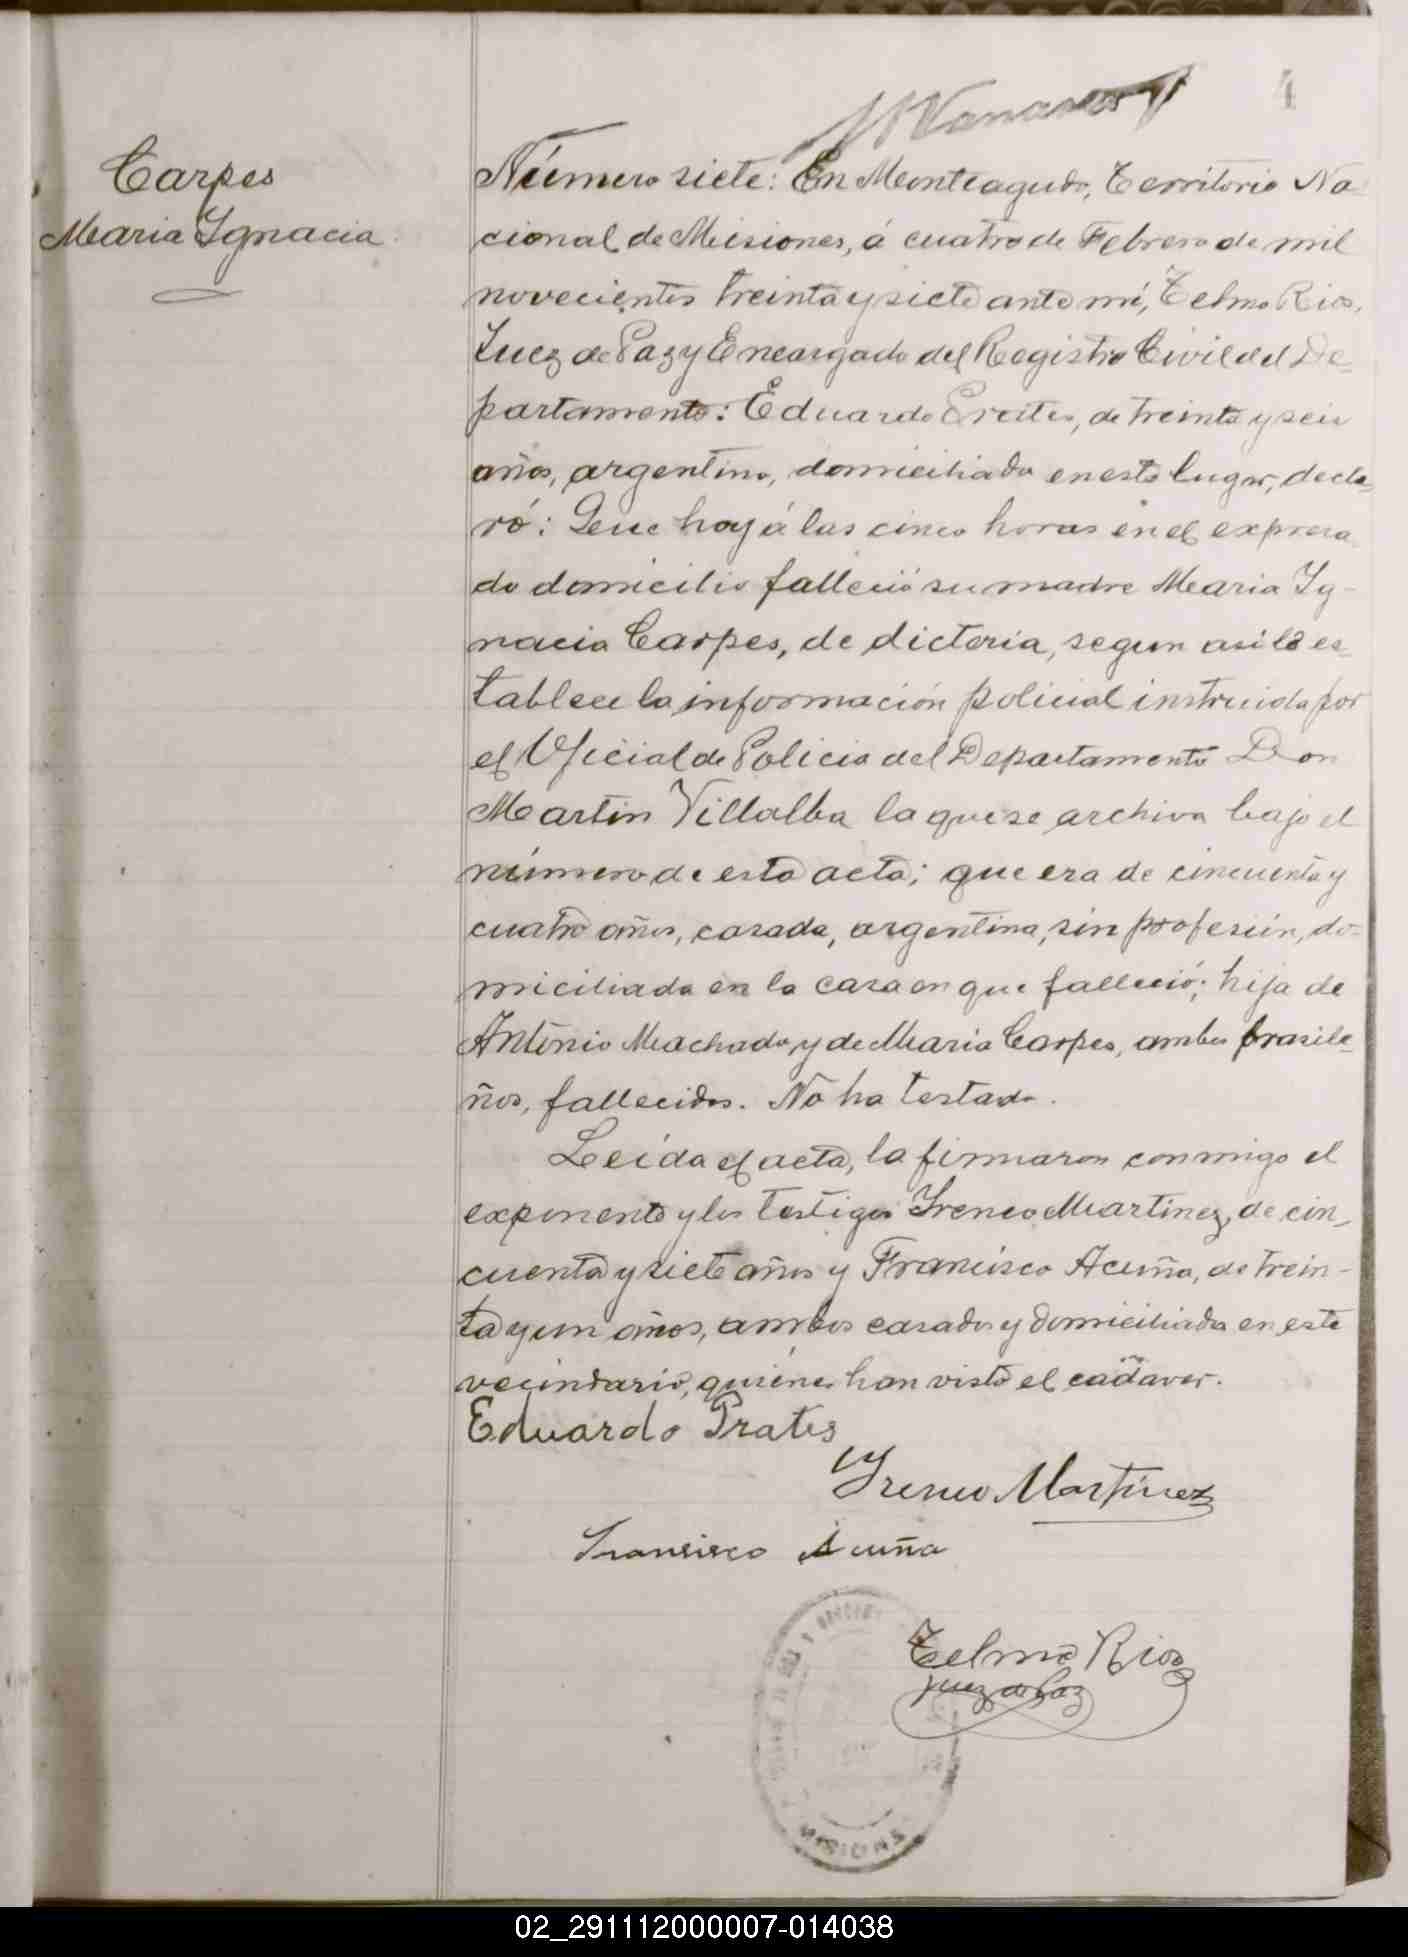 4
Carpes
Maria Ignacia
Número siete: En Monteagudo, Territorio Na
cional de Misiones, á cuatro de Febrero de mil
novecientos treinta y siete ante mí, Telmo Rios,
Juez de Paz y Encargado del Registro Civil del De-
partamento: Eduardo Prates, de treinta y seis
años, argentino, domiciliado en este lugar, decla-
ró: Que hoy á las cinco horas en el expresa
do domicilio falleció su madre Maria Ig-
nacia Carpes, de dicteria, segun asi lo es-
tablece la información policial instruida por
el Oficial de Policia del Departamento Don
Martin Villalba la que se archiva bajo el
número de esta acta; que era de cincuenta y
cuatro años, casada, argentina, sin profesión, do-
miciliada en la casa en que falleció; hija de
Antonio Machado y de Maria Carpes, ambos brasile-
ños, fallecidos. No ha testado.
Leída el acta, la firmaron conmigo el
exponente y los testigos Ireneo Martinez, de cin-
cuenta y siete años y Francisco Acuña, de trein-
ta y un años, ambos casados y domiciliados en este
vecindario, quiénes han visto el cadaver.
Eduardo Prates
Ireneo Martinez
Fransisco Acuña
Telmo Rios
Juez de Paz
MISIONES
02_291112000007-014038